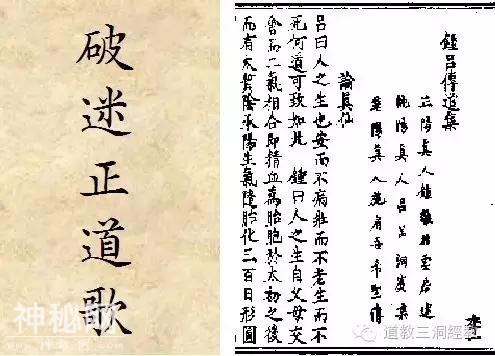 破迷正道歌
神秘
鍾吕傳道集
正陽真人鍾離權雲房述
純陽真人吕嵓洞賓集
華陽真人施肩吾希聖傳
論真仙
吕曰人之生也安而不病壯而不老生而不
死何道可致如此 鍾曰人之生自父母交
會而二氣相合即精血為胎胞於太初之後
而有太質陰承陽生氣隨胎化三百日形圓
道教三洞經